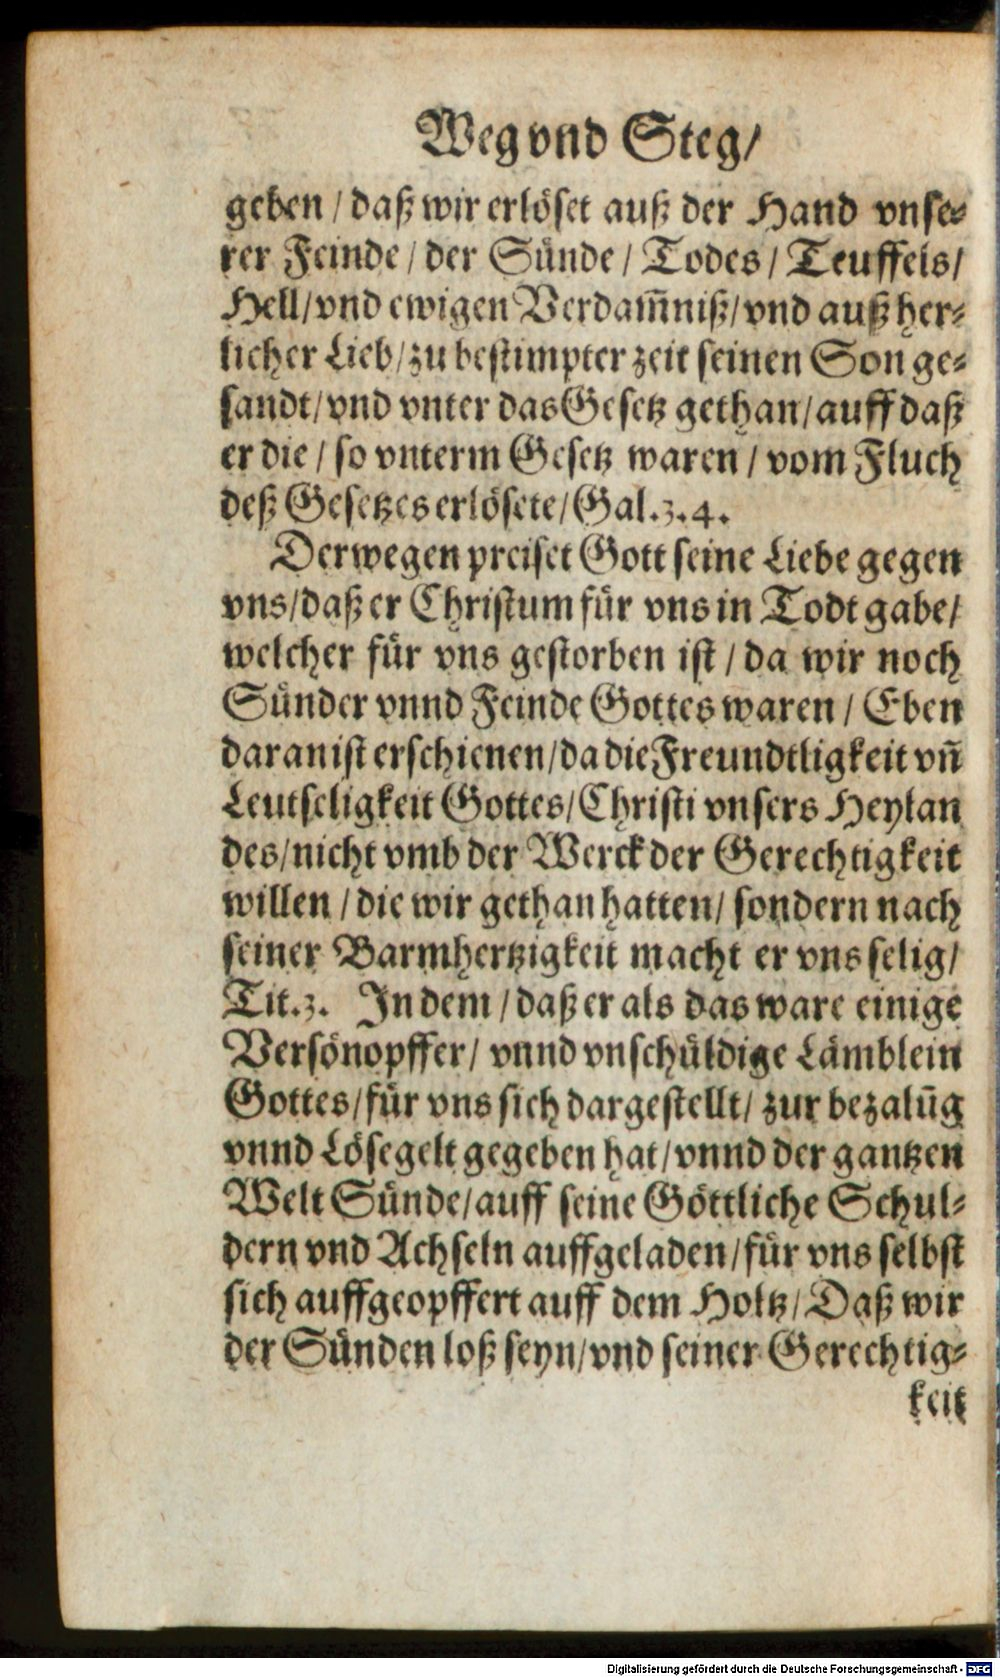 Weg vnd Steg/
geben / daß wir erlöset auß der Hand vnse-
rer Feinde / der Sünde / Todes / Teuffels /
Hell / vnd ewigen Verdam̃niß / vnd auß her-
licher Lieb / zu bestimpter zeit seinen Son ge-
sandt / vnd vnter das Gesetz gethan / auff daß
er die / so vnterm Gesetz waren / vom Fluch
deß Gesetzes erlösete / Gal. 3. 4.
Derwegen preiset Gott seine Liebe gegen
vns / daß er Christum für vns in Todt gabe /
welcher für vns gestorben ist / da wir noch
Sünder vnnd Feinde Gottes waren / Eben
daran ist erschienen / da die Freundtligkeit vñ
Leutseligkeit Gottes / Christi vnsers Heylan
des / nicht vmb der Werck der Gerechtigkeit
willen / die wir gethan hatten / sondern nach
seiner Barmhertzigkeit macht er vns selig /
Tit. 3. In dem / daß er als das ware einige
Versönopffer / vnnd vnschüldige Lämblein
Gottes / für vns sich dargestellt / zur bezalũg
vnnd Lösegelt gegeben hat / vnnd der gantzen
Welt Sünde / auff seine Göttliche Schul-
dern vnd Achseln auffgeladen / für vns selbst
sich auffgeopffert auff dem Holtz / Daß wir
der Sünden loß seyn / vnd seiner Gerechtig-
keit
Digitalisierung gefördert durch die Deutsche Forschungsgemeinschaft - DFG